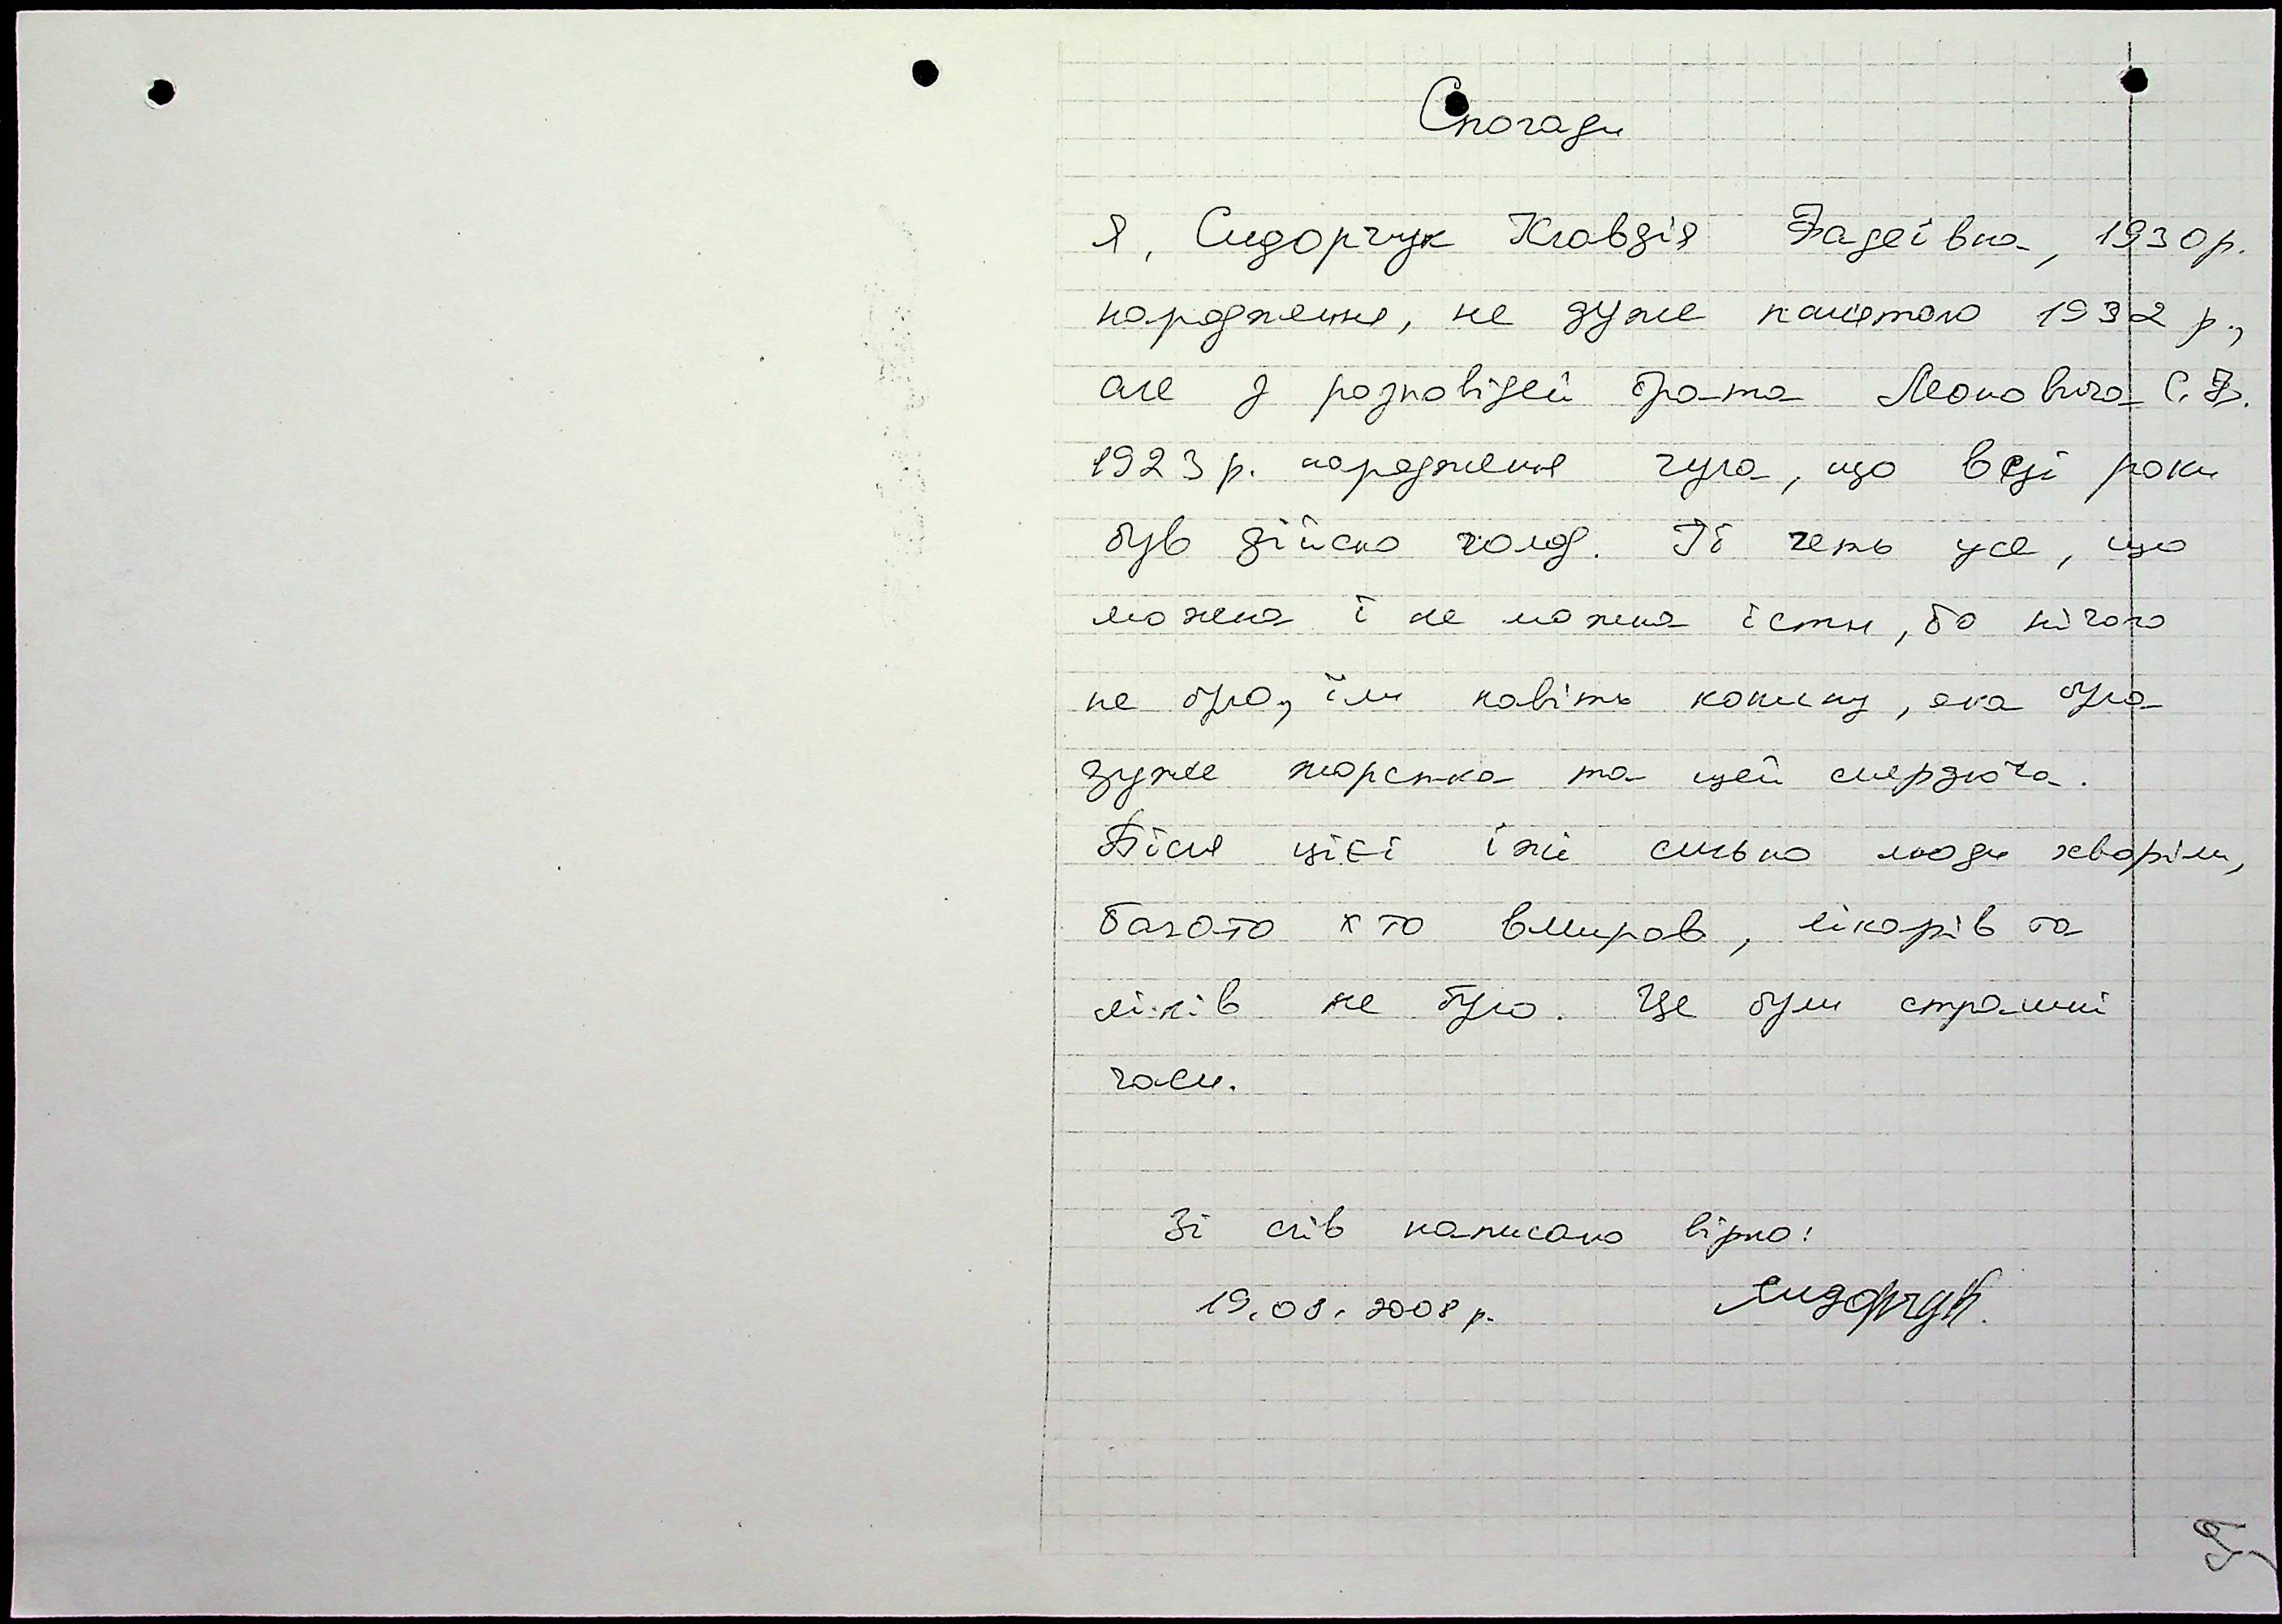 Спогади
Я, Сидорчук Клавдія Фадеївна, 1930р.
народження, не дуже памятаю 1932 р.,
але з розповідей брата Леоновича С.Ф.
1923 р. народження чула, що в ці роки
був дійсно голод. Її геть усе, що
можна і не можна їсти, бо нічого
не було, їли навіть конину, яка була
дуже жорстка та щей смердюча.
Після цієї їжі сильно люди хворіли,
багато хто вмирав, лікарів та
ліків не було. Це були страшні
часи.
Зі слів написано вірно:
19.08.2008 р. Сидорчук